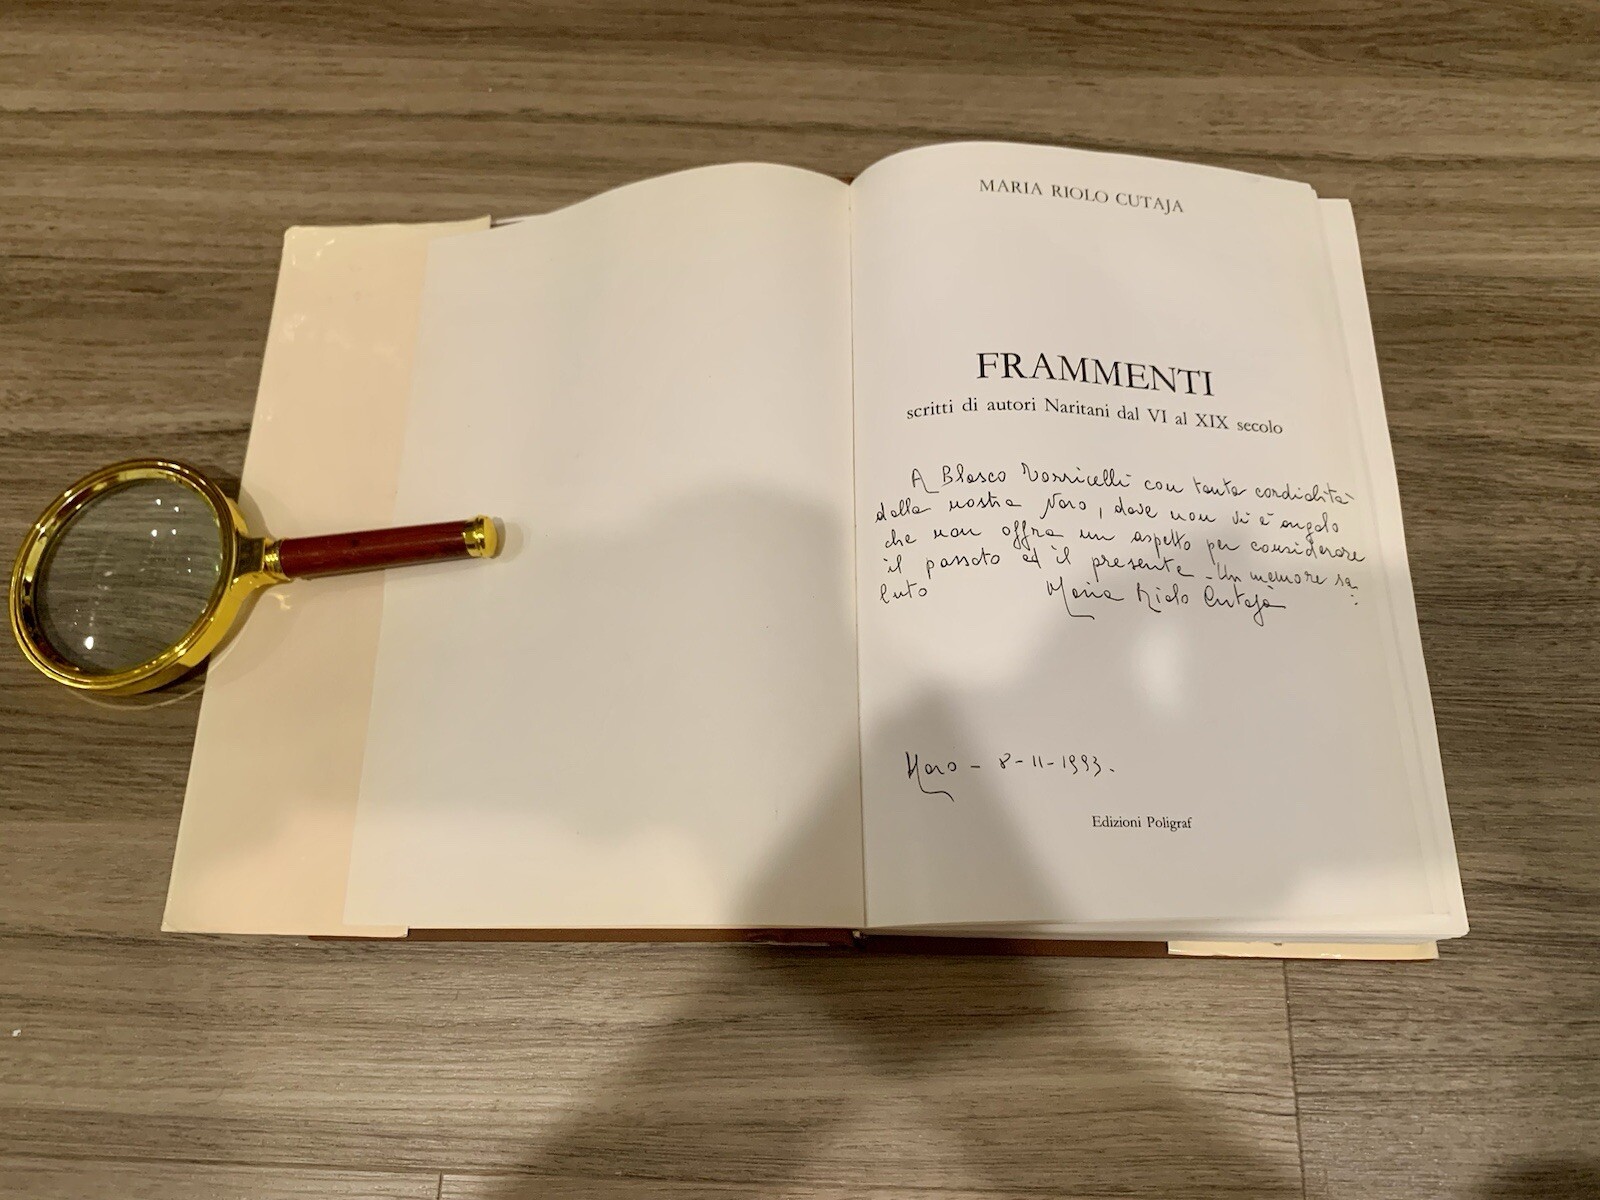 MARIA RIOLO CUTAJA
FRAMMENTI
scritti di autori Naritani dal VI al XIX secolo
A Blasco Torricelli con tanta cordialità
dalla nostra Naro, dove non vi è angolo
che non offra un aspetto per considerare
il passato ed il presente - Un memore sa
luto Maria Riolo Cutaja
Naro - 8-11-1993.
Edizioni Poligraf